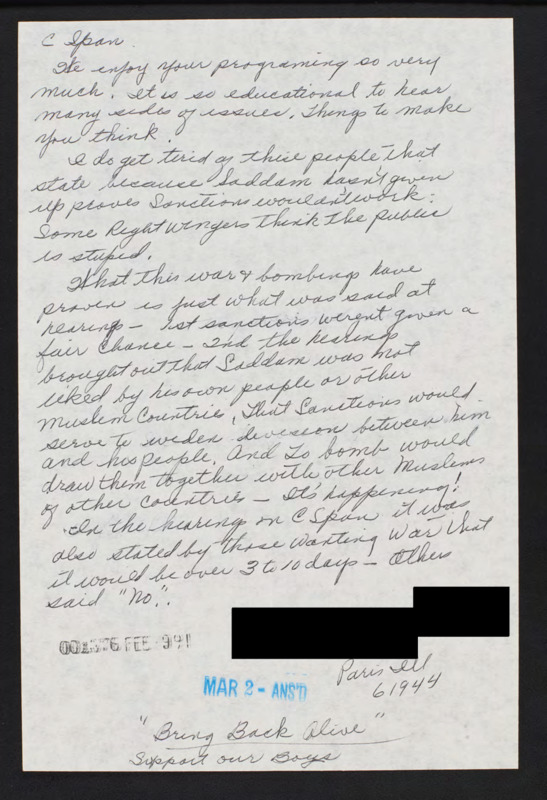 C Span.
We enjoy your programing so very
much. It is so educational to hear
many sides of issues. Things to make
you think.
I do get tired of these people that
state because Saddam hasn't given
up proves Sanctions wouldn't work.
Some Right wingers think the public
is stupid.
What this war & bombings have
proven is just what was said at
hearings – 1st sanctions weren't given a
fair chance – 2nd the hearings
brought out that Saddam was not
liked by his own people or other
Muslem Countries, that Sanctions would
serve to widen devision between him
and his people. And To bomb would
draw them together with other Muslems
of other countries – It's happening!
In the hearing on C Span it was
also stated by those wanting war that
it would be over 3 to 10 days – Others
said "No."
FEB 991
MAR 2 - ANS'D
Paris Ill
61944
"Bring Back Alive"
Support our Boys